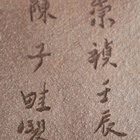 崇禎壬辰
陳子畦